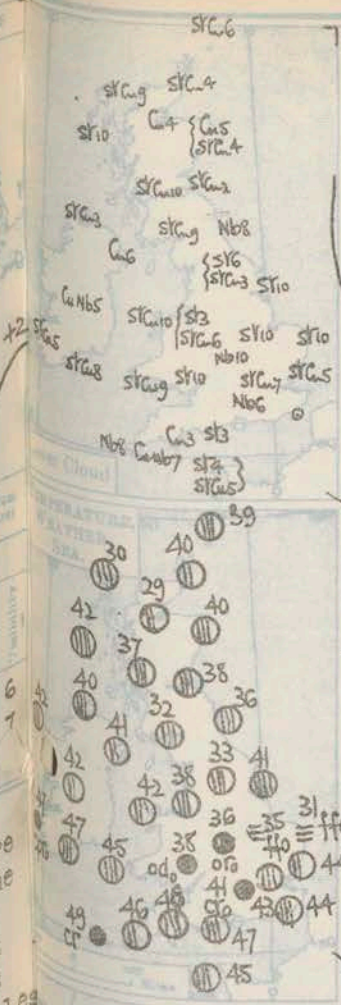 StCu6
StCu9 StCu4
St10 Cu4 {Cu5
StCu4
StCu10 StCu2
StCu3 StCu9 Nb8
Cu6 {St6
StCu3 St10
CuNb5 StCu10 {St3
StCu6 St10 St10
+2 StCu5
Nb10
StCu8 StCu9 St10 StCu7 StCu5
Nb6
Cu3 St3
Nb8 CuNb7 St4}
StCu5
Cloud
TEMPERATURE,
WEATHER
SEA.
39
40
30
29
42 40
37
40 38
32 36
42
41
42 33 41
42 38
36 35 31
47 38 ffo
45 odo oro 44
41
49 46 48 oro 43 44
cr 47
45